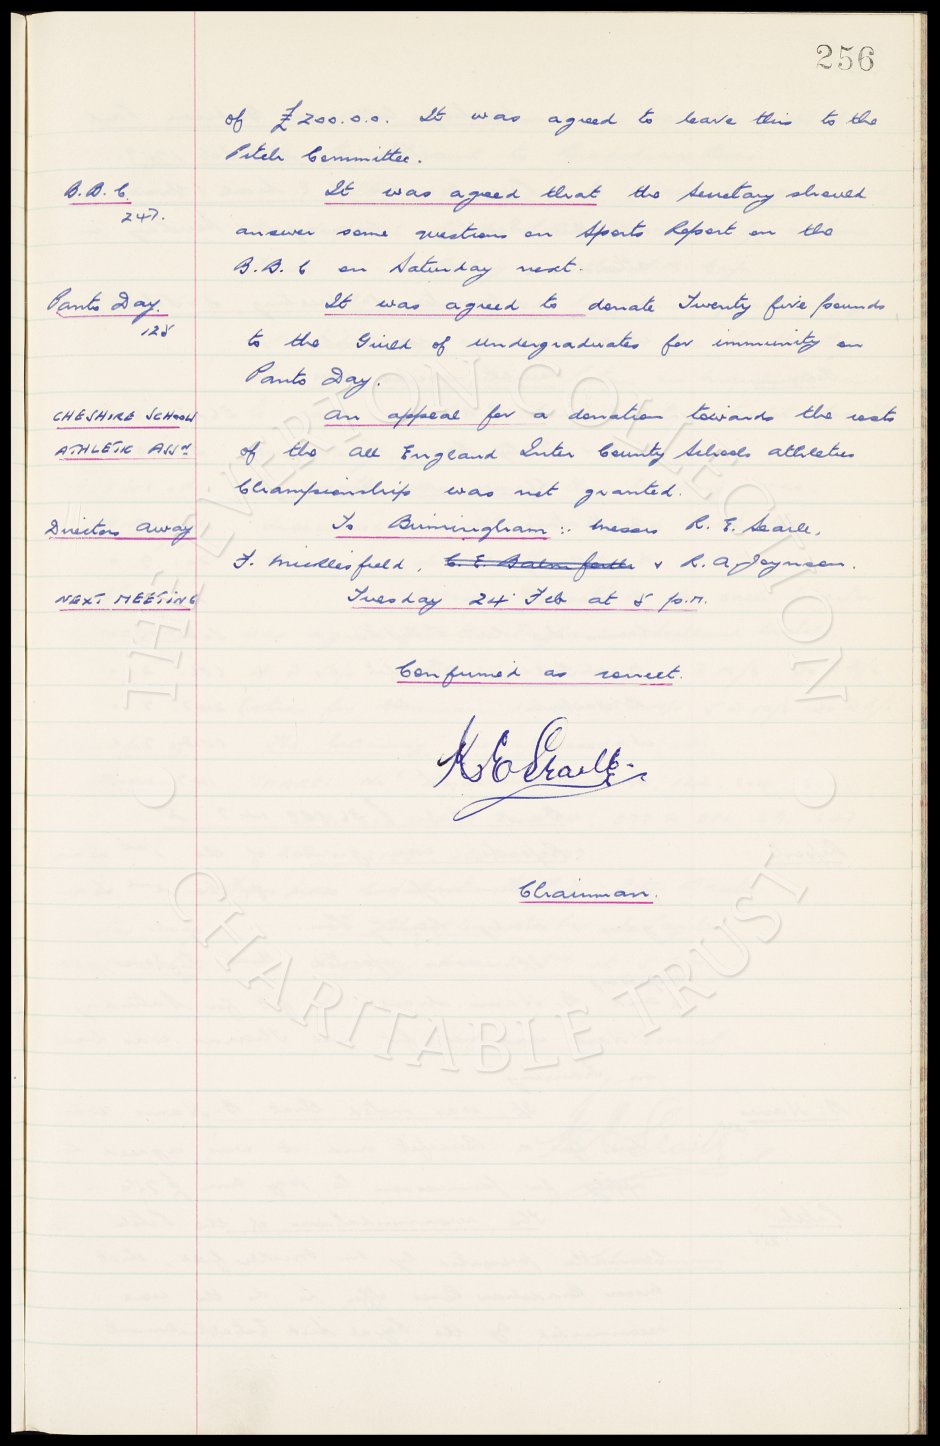 256
of £200.0.0. It was agreed to leave this to the
Pitch Committee.
B.B.C. It was agreed that the Secretary should
247. answer some questions on Sports Report on the
B.B.C on Saturday next.
Panto Day. It was agreed to donate Twenty five pounds
128 to the Guild of Undergraduates for immunity on
Panto Day.
CHESHIRE SCHOOLS An appeal for a donation towards the costs
ATHLETIC ASSN of the All England Inter County Schools athletics
Championship was not granted.
Directors away To Birmingham :- Messrs R. E. Searle,
F. Micklesfield, C. E. Balmforth & R. A. Joynson.
NEXT MEETING Tuesday 24 Feb at 5 p.m.
Confirmed as correct.
R E Searle
Chairman.
THE EVERTON COLLECTION
CHARITABLE TRUST